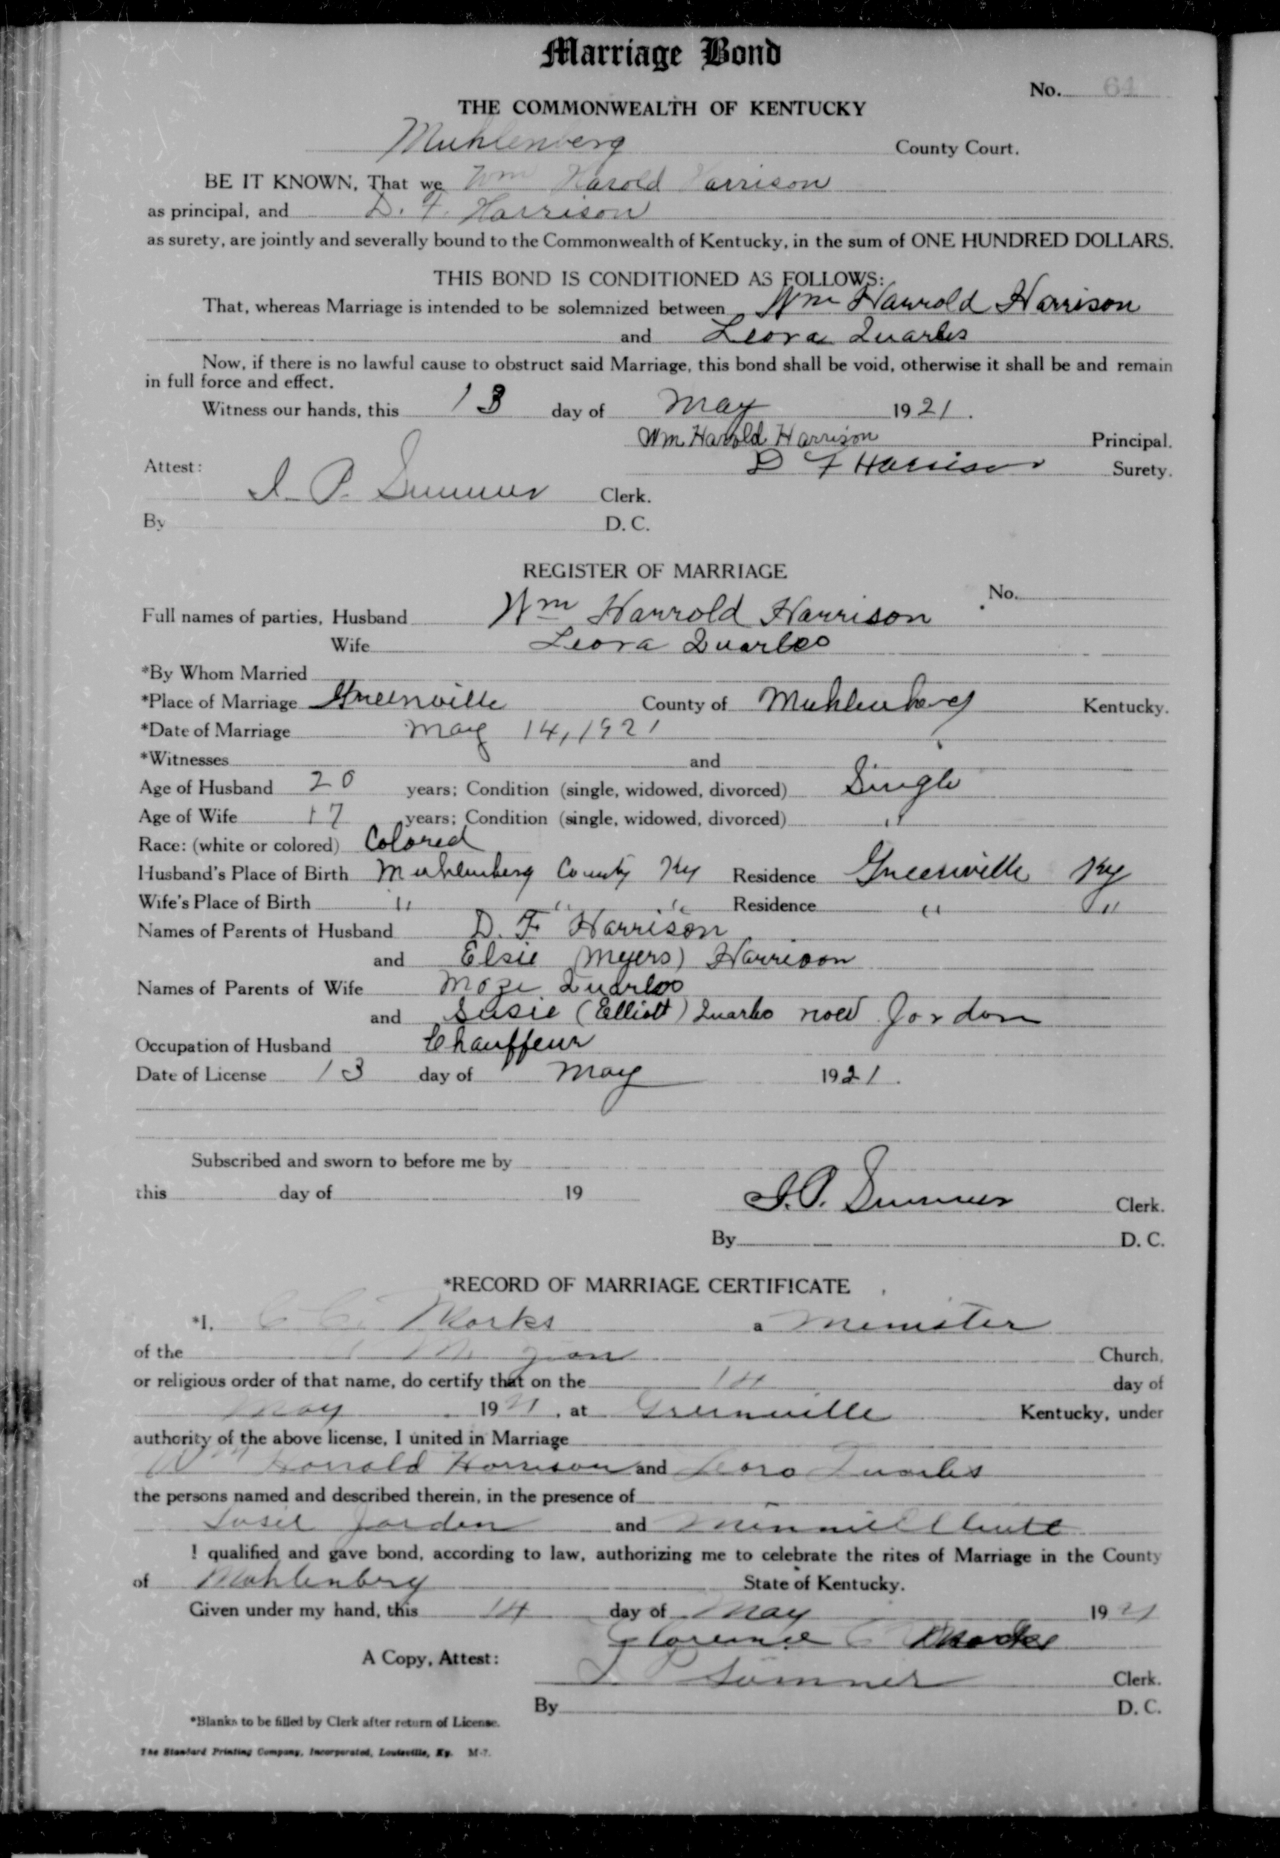 Marriage Bond
No. 64
THE COMMONWEALTH OF KENTUCKY
Muhlenberg County Court.
BE IT KNOWN, That we Wm Harold Harrison
as principal, and D. F. Harrison
as surety, are jointly and severally bound to the Commonwealth of Kentucky, in the sum of ONE HUNDRED DOLLARS.
THIS BOND IS CONDITIONED AS FOLLOWS:
That, whereas Marriage is intended to be solemnized between Wm Harrold Harrison
and Leora Quarles
Now, if there is no lawful cause to obstruct said Marriage, this bond shall be void, otherwise it shall be and remain
in full force and effect.
Witness our hands, this 13 day of May 1921.
Wm Harold Harrison Principal.
D F Harrison Surety.
Attest:
I. P. Summer Clerk.
By D. C.
REGISTER OF MARRIAGE
No.
Full names of parties, Husband Wm Harrold Harrison
Wife Leora Quarles
*By Whom Married
*Place of Marriage Greenville County of Muhlenberg Kentucky.
*Date of Marriage May 14, 1921
*Witnesses and
Age of Husband 20 years; Condition (single, widowed, divorced) Single
Age of Wife 17 years; Condition (single, widowed, divorced) "
Race: (white or colored) Colored
Husband's Place of Birth Muhlenberg County Ky Residence Greenville Ky
Wife's Place of Birth " " " Residence " "
Names of Parents of Husband D. F Harrison
and Elsie (Myers) Harrison
Names of Parents of Wife Moze Quarles
and Susie (Elliott) Quarles now Jordon
Occupation of Husband Chauffeur
Date of License 13 day of May 1921.
Subscribed and sworn to before me by
this day of 19
I. P. Summer Clerk.
By D. C.
*RECORD OF MARRIAGE CERTIFICATE
*I, C. C. Marks a Menister
of the M. Zion Church,
or religious order of that name, do certify that on the 14 day of
May 1921, at Greenville Kentucky, under
authority of the above license, I united in Marriage
Wm Harrold Harrison and Leora Quarles
the persons named and described therein, in the presence of
Susie Jorden and Minnie Elliott
I qualified and gave bond, according to law, authorizing me to celebrate the rites of Marriage in the County
of Muhlenberg State of Kentucky.
Given under my hand, this 14 day of May 1921
Clarence C Marks
A Copy, Attest:
I P Summer Clerk.
By D. C.
*Blanks to be filled by Clerk after return of License.
The Standard Printing Company, Incorporated, Louisville, Ky. M-7.